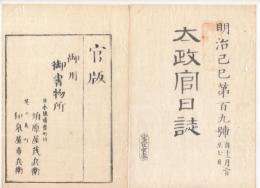 明治己巳第百九號
太政官日誌
官版
御用
御書物所
須原屋茂兵衛
和泉屋市兵衛